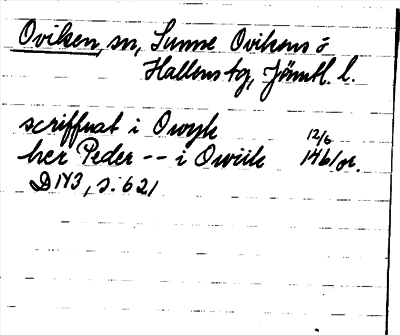 Oviken, sn, Sunne Ovikens o
Hallens tg, Jämtl. l.
scriffuat i Owyk
12/6
her Peder -- i Owiik 1461 or.
D 143, s. 621